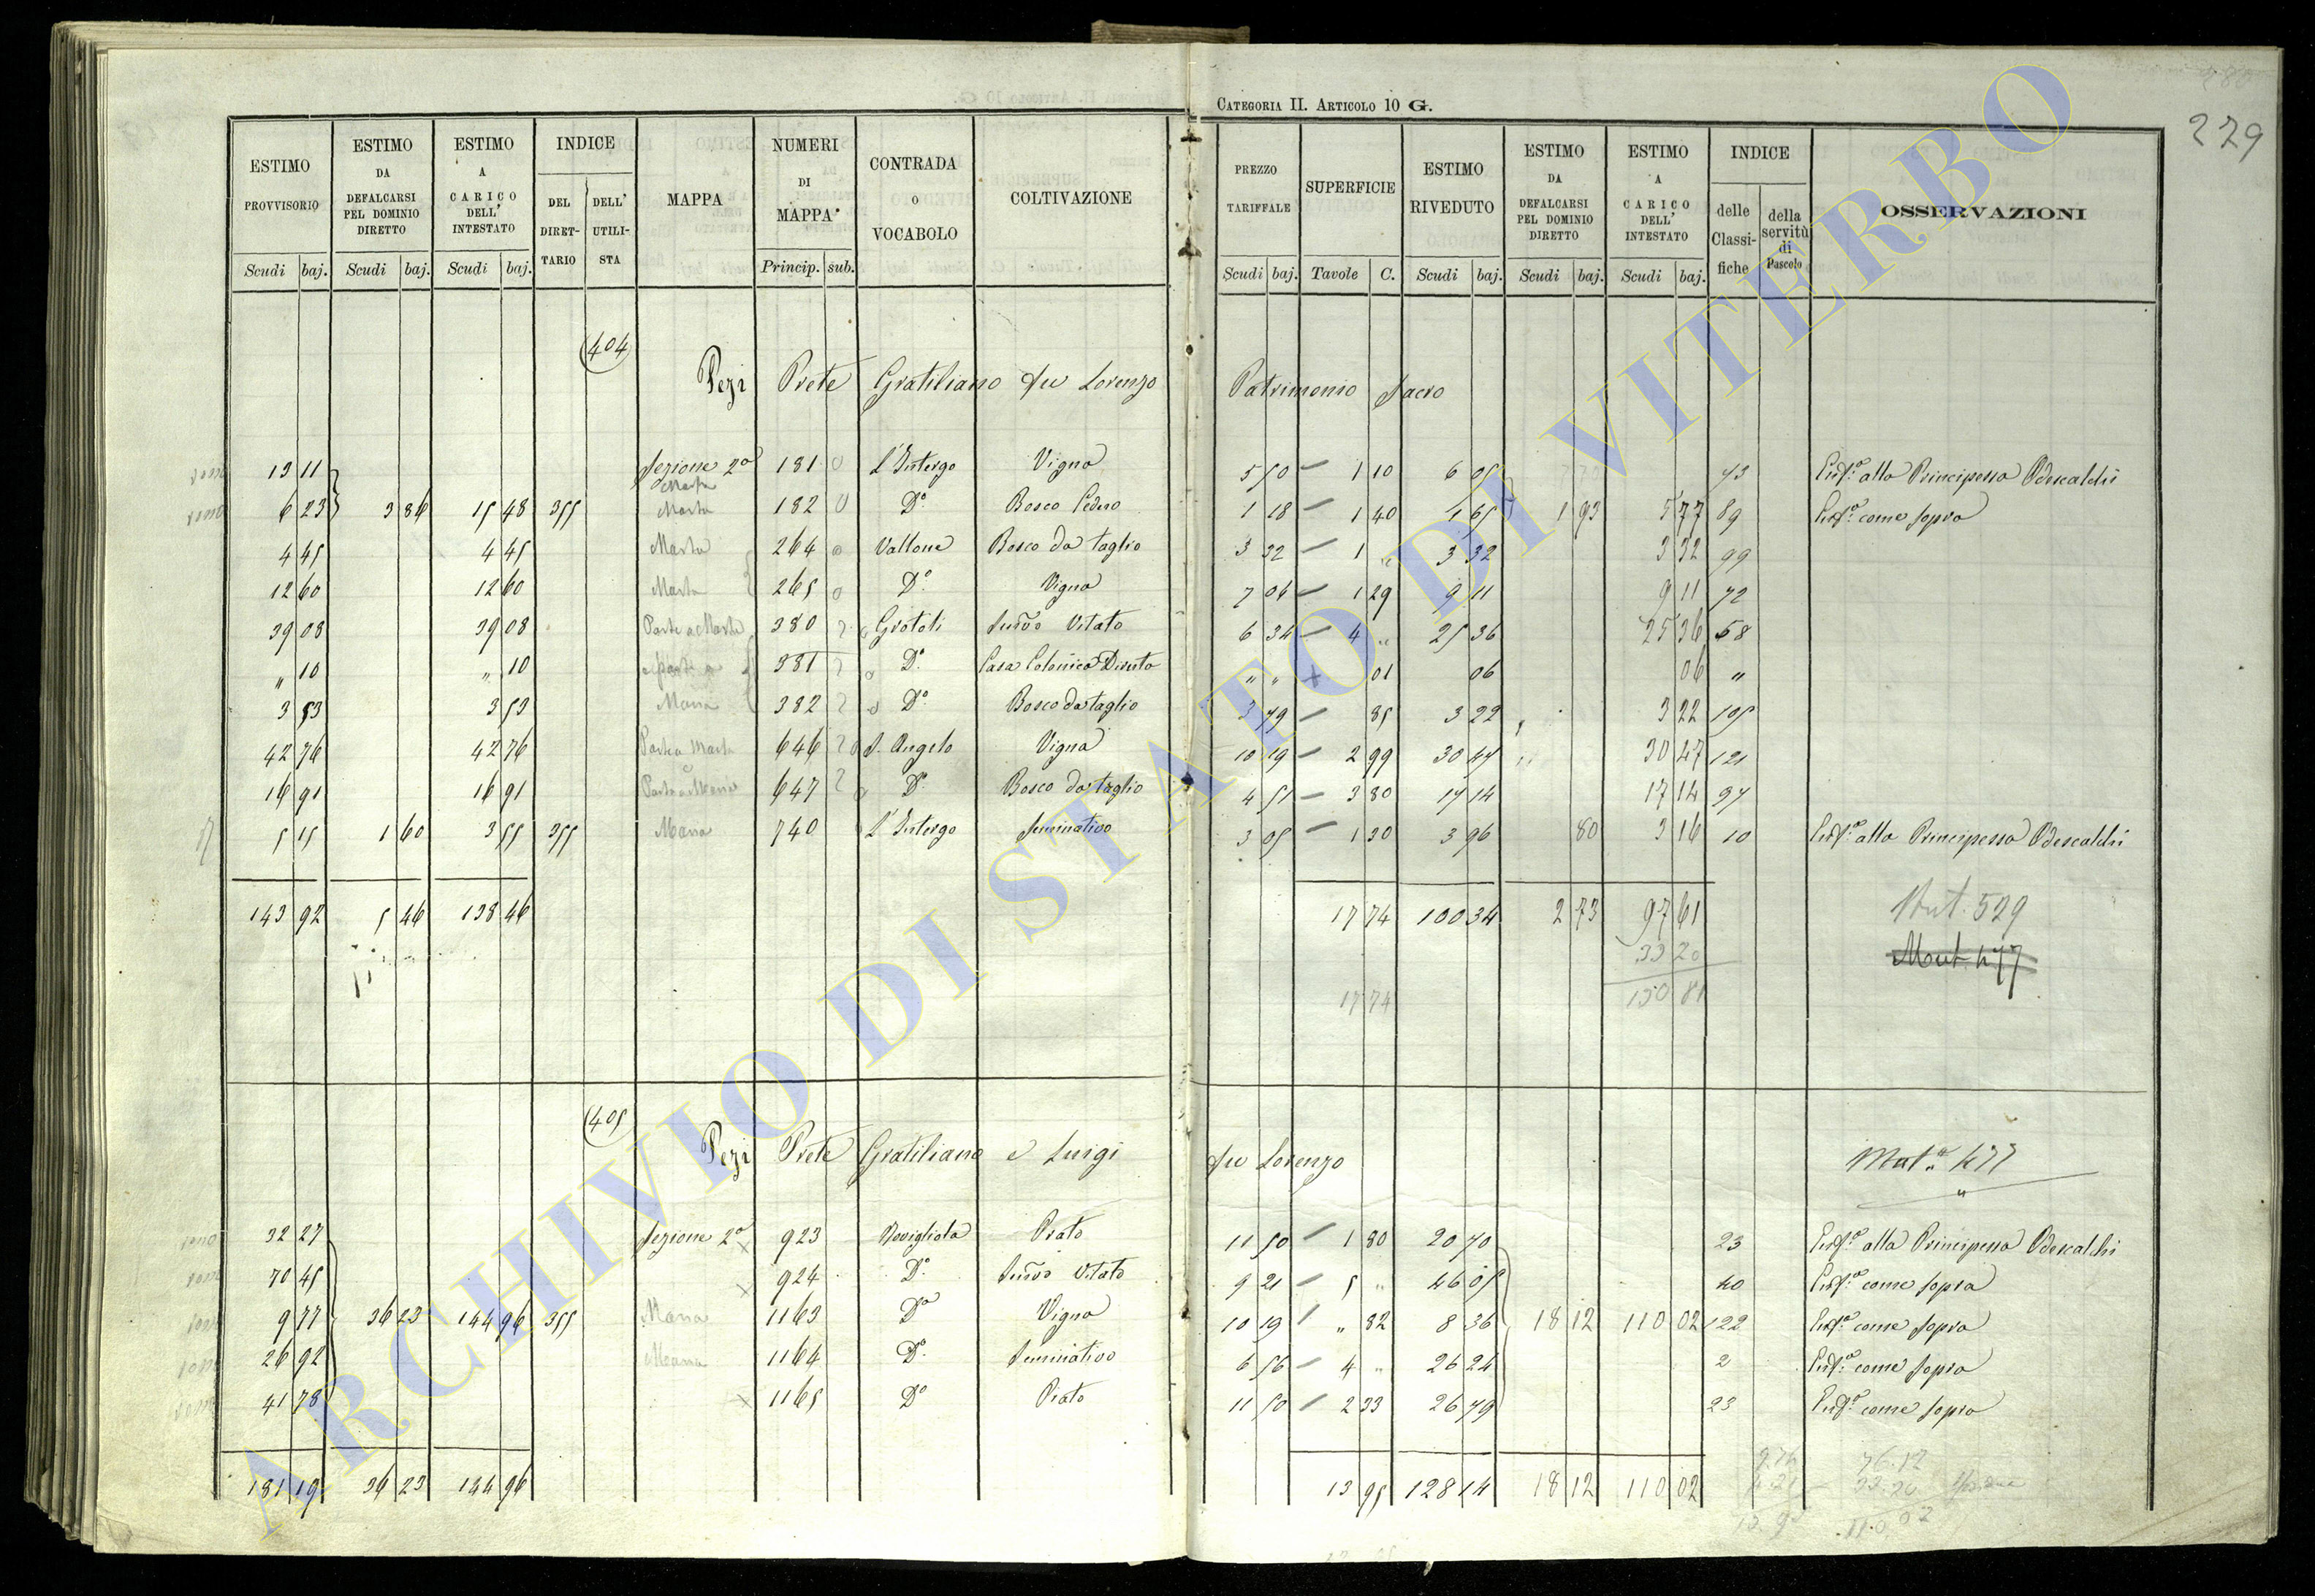 CATEGORIA II. ARTICOLO 10 G.
229
ESTIMO PROVVISORIO | ESTIMO DA DEFALCARSI PEL DOMINIO DIRETTO | ESTIMO A CARICO DELL' INTESTATO | INDICE | MAPPA | NUMERI DI MAPPA | CONTRADA O VOCABOLO | COLTIVAZIONE | PREZZO TARIFFALE | SUPERFICIE | ESTIMO RIVEDUTO | ESTIMO DA DEFALCARSI PEL DOMINIO DIRETTO | ESTIMO A CARICO DELL' INTESTATO | INDICE | OSSERVAZIONI
DEL DIRET-TARIO | DELL' UTILI-STA | delle Classi-fiche | della servitù di Pascolo
Scudi baj. | Scudi baj. | Scudi baj. | Princip. sub. | Scudi baj. | Tavole C. | Scudi baj. | Scudi baj. | Scudi baj.
404
Pezi Prete Gratiliano fu Lorenzo Patrimonio Sacro
13 11 Sezione 2a 181 L'Intergo Vigna 5 50 1 10 6 05 73 Enfa alla Principessa Odescalchi
Marta
6 23 3 86 15 48 355 Marta 182 Do Bosco Ceduo 1 18 1 40 1 65 1 93 5 77 89 Enfa come sopra
4 45 4 45 Marta 264 Vallone Bosco da taglio 3 32 1 " 3 32 3 32 99
12 60 12 60 Marta 265 Do Vigna 7 06 1 29 9 11 9 11 72
39 08 39 08 Parte a Marta 380 Grotoli Semvo Vitato 6 34 4 " 25 36 25 36 58
" 10 " 10 e parte a 381 Do Casa Colonica Diruta " " 01 06 06 "
3 53 3 53 Mana 382 Do Bosco da taglio 3 79 85 3 22 3 22 105
42 76 42 76 Parte a Marta 646 S. Angelo Vigna 10 19 2 99 30 47 30 47 121
16 91 16 91 647 Do Bosco da taglio 4 51 3 80 17 14 17 14 97
5 15 1 60 3 55 355 Mana 740 L'Intergo Seminativo 3 05 1 30 3 96 80 3 16 10 Enfa alla Principessa Odescalchi
143 92 5 46 138 46 17 74 100 34 2 73 97 61
529
33 20
Mut. 477
17 74 130 81
405
Pezi Prete Gratiliano e Luigi fu Lorenzo
Muta 477
32 27 Sezione 2a 923 Rovigliola Prato 11 50 1 80 20 70 23 Enfa alla Principessa Odescalchi
70 45 924 Do Semvo Vitato 9 21 5 " 46 05 40 Enfa come sopra
9 77 36 23 144 96 355 Mana 1163 Do Vigna 10 19 " 82 8 36 18 12 110 02 122 Enfa come sopra
26 92 Mana 1164 Do Seminativo 6 56 4 " 26 24 2 Enfa come sopra
41 78 1165 Do Prato 11 50 2 33 26 79 23 Enfa come sopra
181 19 36 23 144 96 13 95 128 14 18 12 110 02
76.12
ARCHIVIO DI STATO DI VITERBO